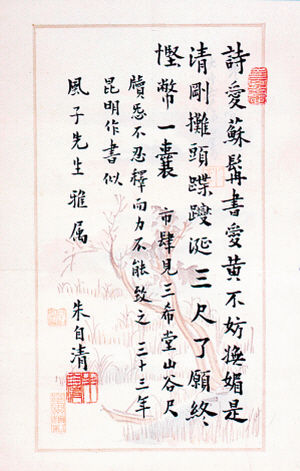 詩愛蘇髯書愛黃不妨撫媚是
清剛攤頭蹀躞涎三尺了願終
慳幣一囊 市肆見三希堂山谷尺
牘愛不忍釋而力不能致之 三十三年
昆明作書似
風子先生雅属
朱自清